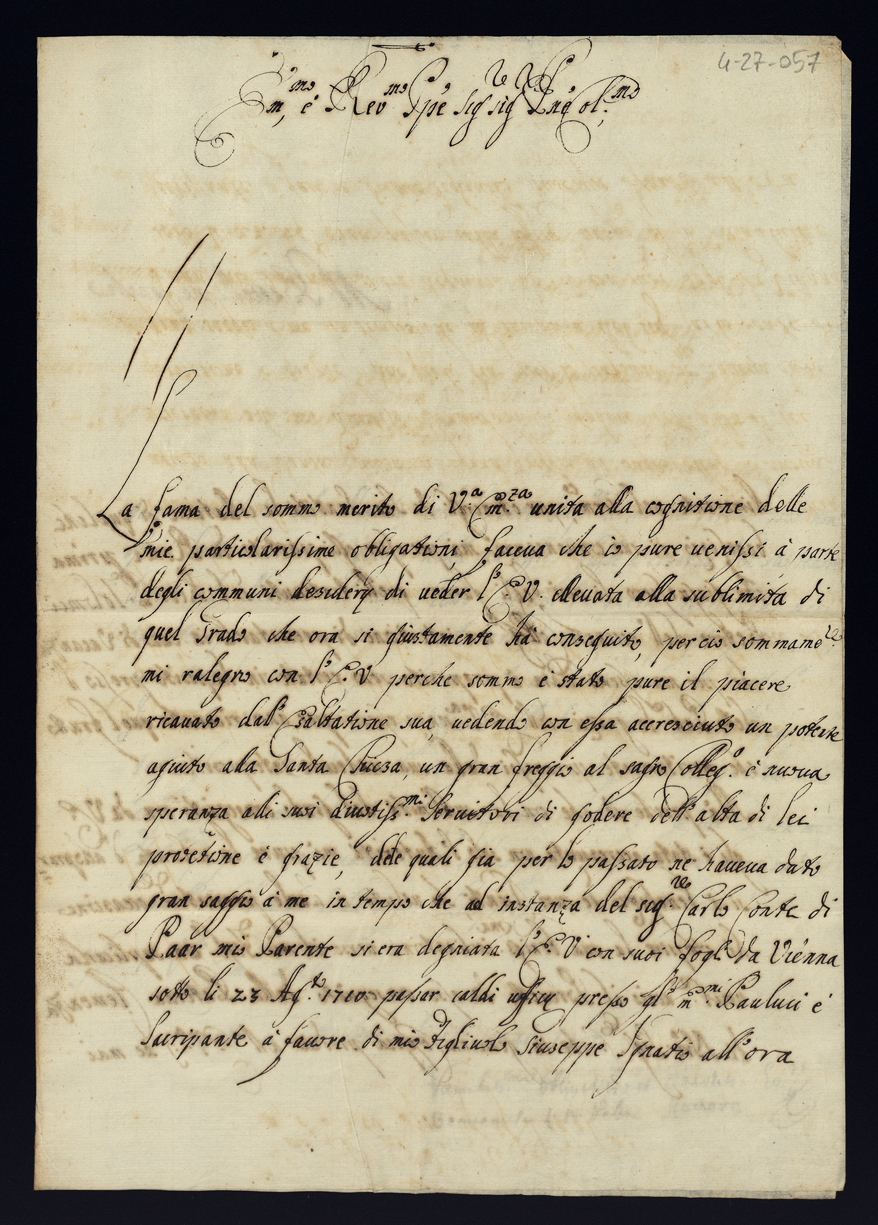 4-27-057
Em.mo, e Rev.mo Spe Sig sig.re Pne Col.mo
La fama del sommo merito di V.a Em.za unita alla cognitione delle
mie particolarissime obligationi, faceva che io pure venissi à parte
degli communi desiderÿ di veder l'E. V. ellevata alla sublimità di
quel Grado che ora si giustamente hà conseguito, per cio sommame.te
mi ralegro con l'E. V perche sommo è stato pure il piacere
ricavato dal' Esaltatione sua, vedendo con essa accresciuto un potente
agiuto alla Santa Chiesa, un gran freggio al sagro Colleg.o è nuova
speranza alli suoi Divotiss.mi Servitori di godere dell'alta di lei
protetione è grazie, delle quali già per lo passato ne haveva dato
gran saggio à me in tempo che ad instanza del sig.re Carlo Conte di
Paar mio Parente si era degniata l'E. V con suoi fogli da Vienna
soto li 23 Ag.to 1710 passar caldi ufficÿ presso gl' Em.mi Pauluci è
Sacripante à favore di mio Figliuolo Giuseppe Ignatio all'ora